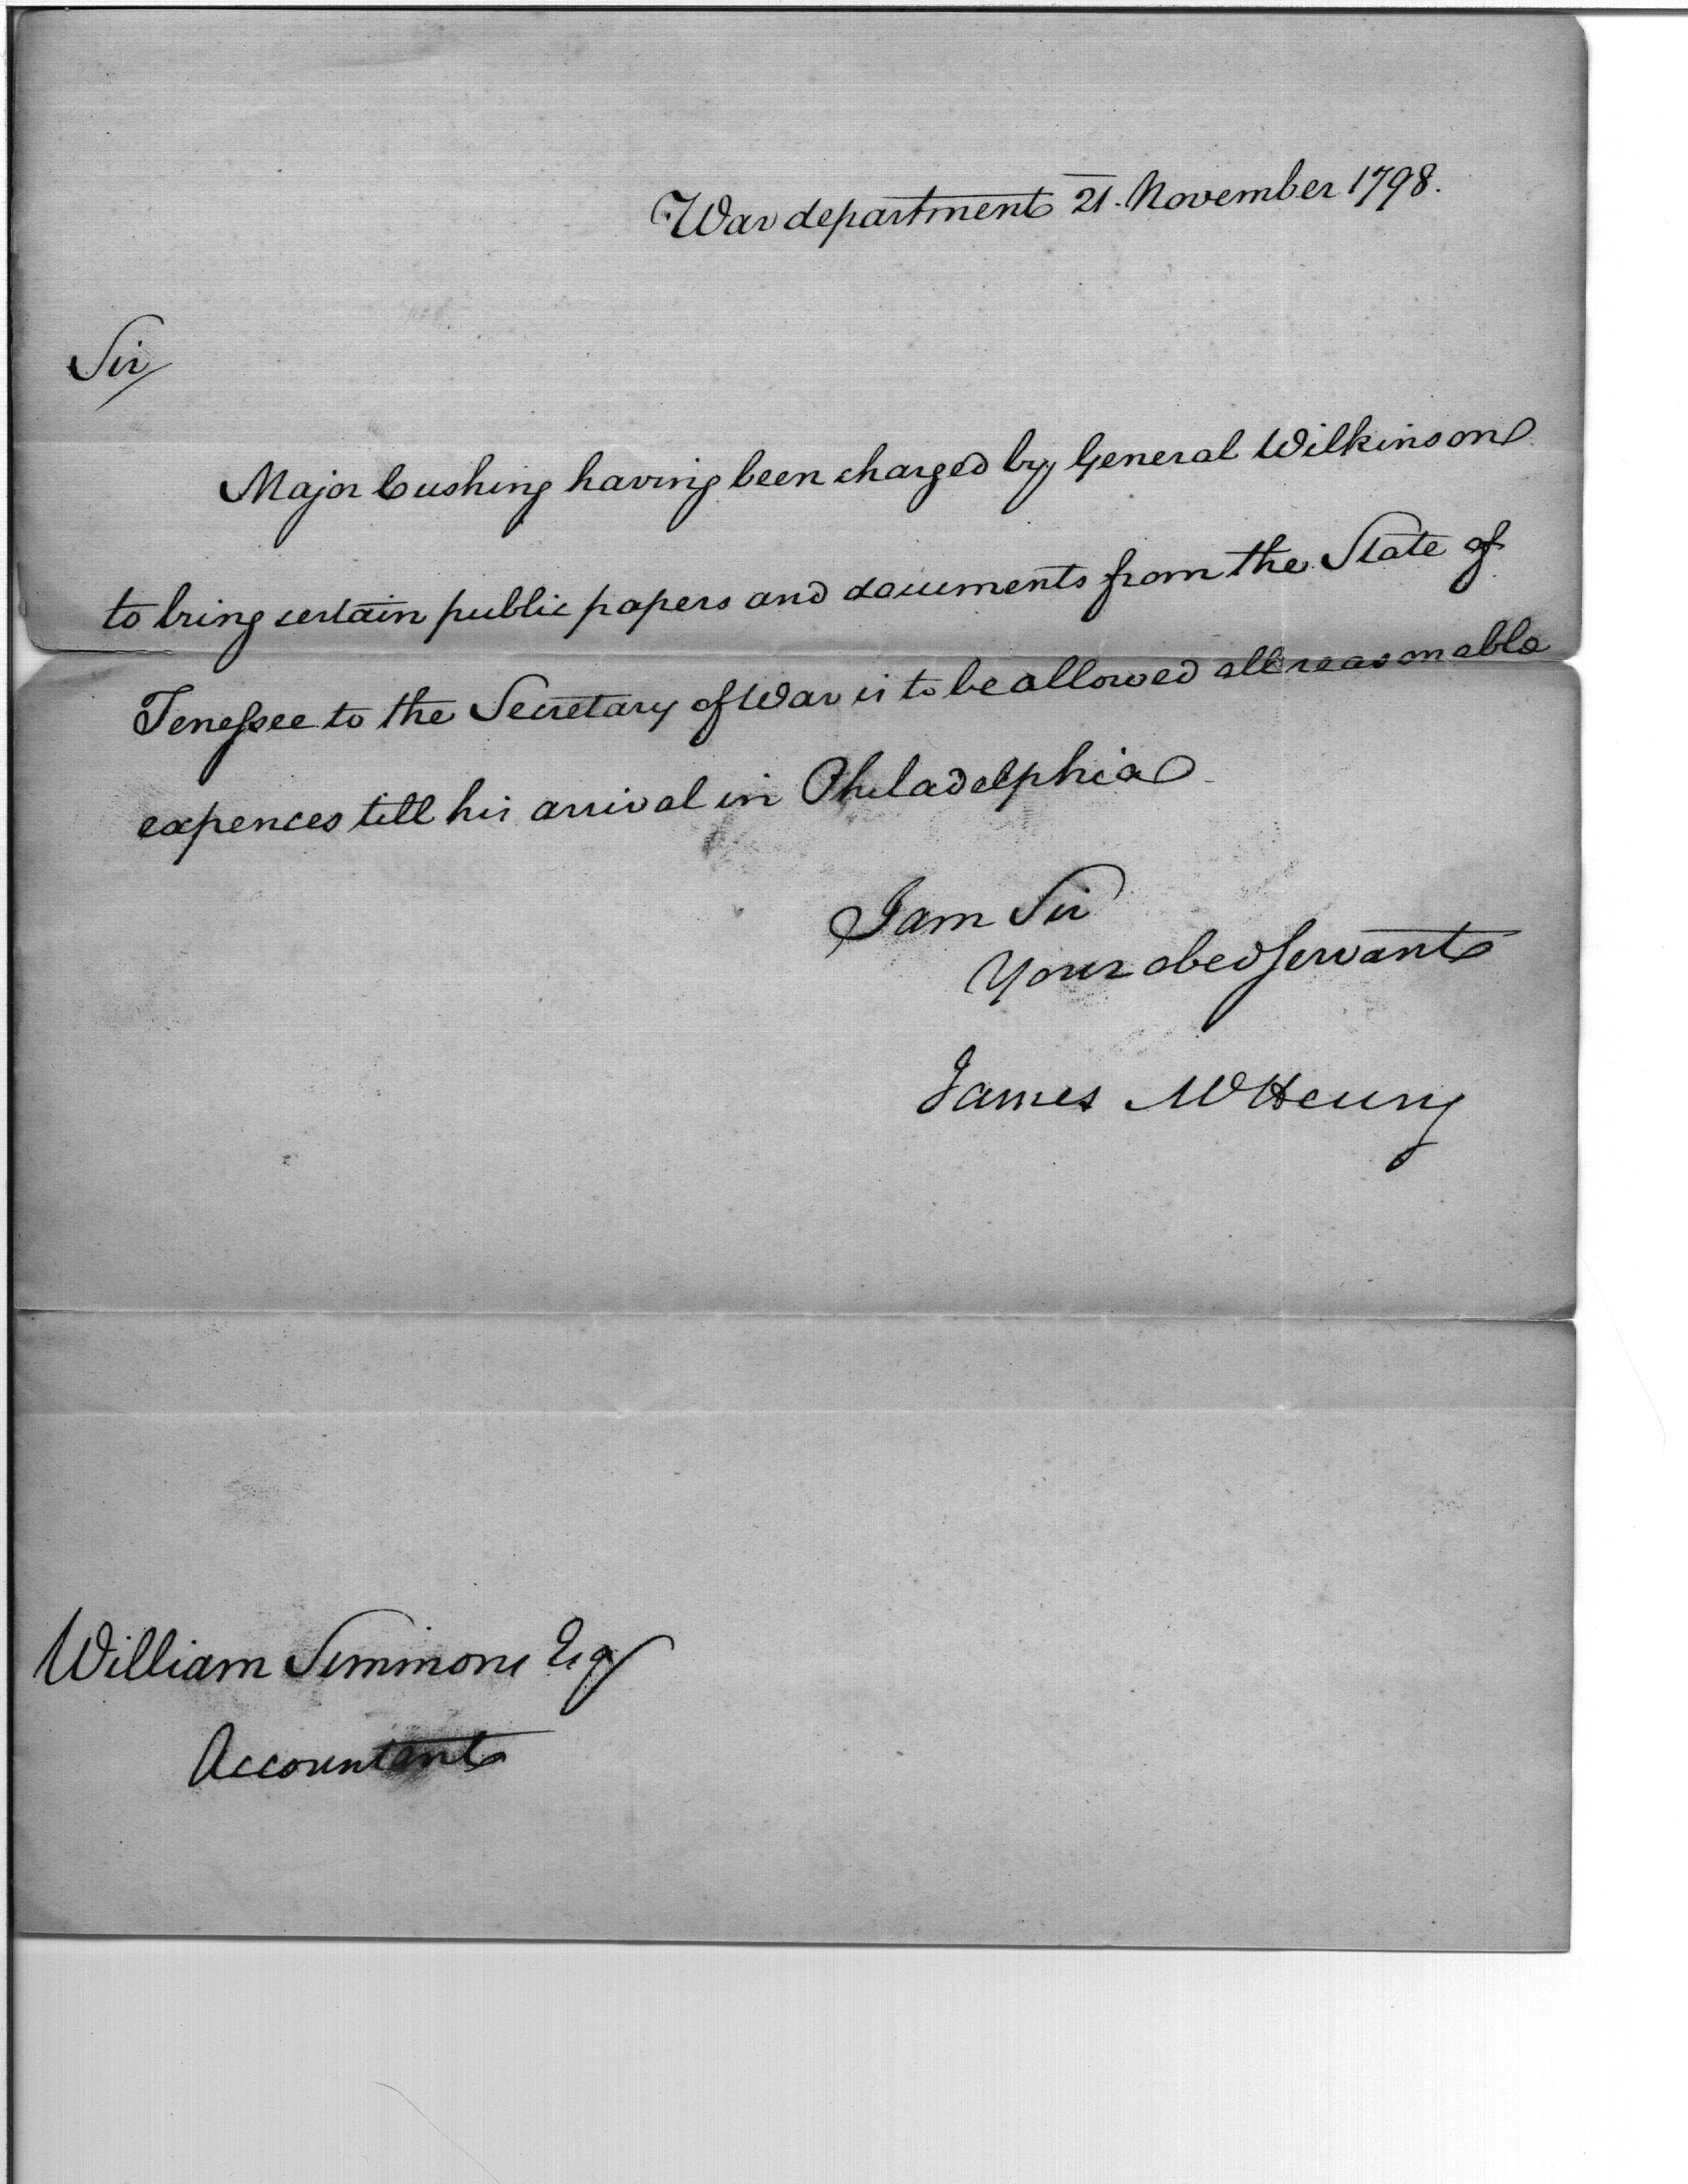 War department 21. November 1798.
Sir
Major Cushing having been charged by General Wilkinson
to bring certain public papers and documents from the State of
Tenessee to the Secretary of War is to be allowed all reasonable
expences till his arrival in Philadelphia
I am Sir
Your obed servant
James McHenry
William Simmons Esq
Accountant